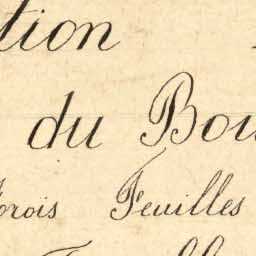 tion
du Bou
rois Feuilles